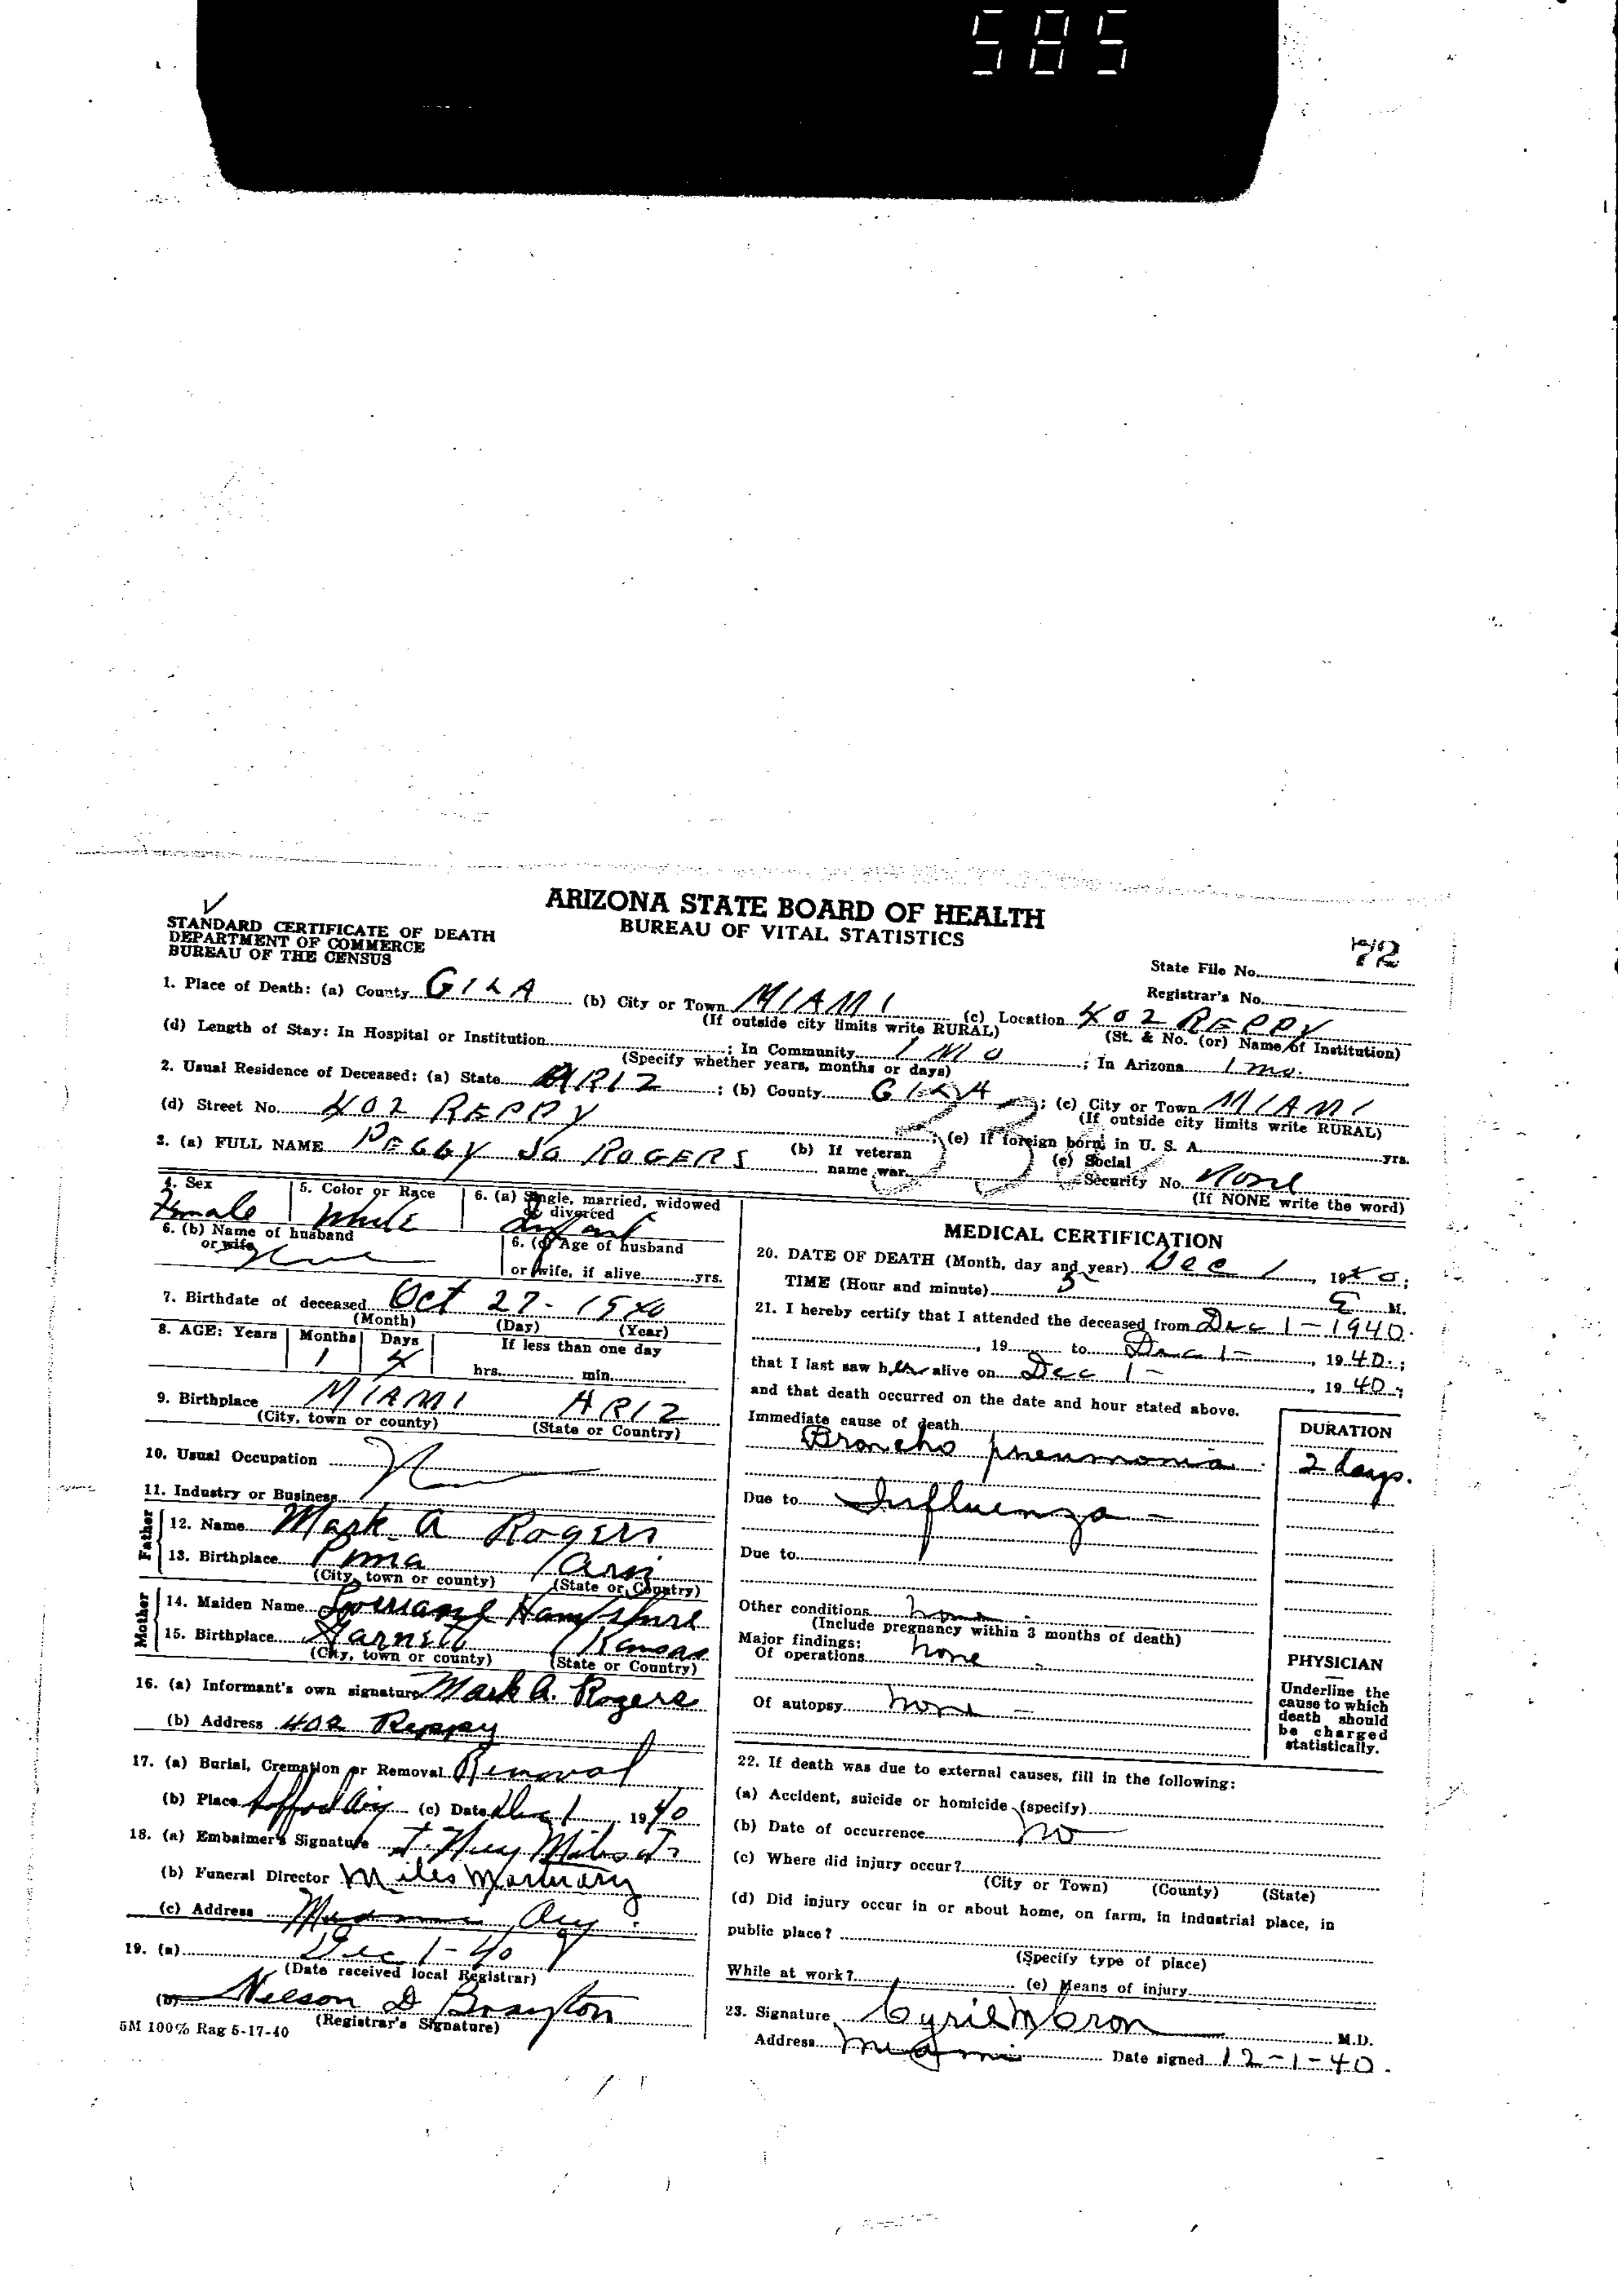 585
ARIZONA STATE BOARD OF HEALTH
BUREAU OF VITAL STATISTICS
STANDARD CERTIFICATE OF DEATH
DEPARTMENT OF COMMERCE
BUREAU OF THE CENSUS
State File No. 72
Registrar's No.
1. Place of Death: (a) County GILA (b) City or Town MIAMI (c) Location 402 REPPY
(If outside city limits write RURAL) (St. & No. (or) Name of Institution)
(d) Length of Stay: In Hospital or Institution ; In Community 1 MO ; In Arizona 1 mo.
(Specify whether years, months or days)
2. Usual Residence of Deceased: (a) State ARIZ ; (b) County GILA ; (c) City or Town MIAMI
(If outside city limits write RURAL)
(d) Street No. 402 REPPY ; (e) If foreign born, in U. S. A. yrs.
3. (a) FULL NAME PEGGY JO ROGERS (b) If veteran name war (c) Social Security No. None
(If NONE write the word)
4. Sex Female 5. Color or Race White 6. (a) Single, married, widowed or divorced Infant
6. (b) Name of husband or wife
6. (c) Age of husband or wife, if alive yrs.
7. Birthdate of deceased Oct 27 - 1940
(Month) (Day) (Year)
8. AGE: Years Months 1 Days 4 If less than one day
hrs. min.
9. Birthplace MIAMI ARIZ
(City, town or county) (State or Country)
10. Usual Occupation
11. Industry or Business
Father
12. Name Mark A Rogers
13. Birthplace Pima Ariz
(City, town or county) (State or Country)
Mother
14. Maiden Name Hampshire
15. Birthplace Kansas
(City, town or county) (State or Country)
16. (a) Informant's own signature Mark A. Rogers
(b) Address 402 Reppy
17. (a) Burial, Cremation or Removal Removal
(b) Place Safford Ariz (c) Date Dec 1 1940
18. (a) Embalmer's Signature Miles Jr
(b) Funeral Director Miles Mortuary
(c) Address Miami Ariz
19. (a) Dec 1-40
(Date received local Registrar)
(b) Nelson D Brayton
(Registrar's Signature)
5M 100% Rag 5-17-40
MEDICAL CERTIFICATION
20. DATE OF DEATH (Month, day and year) Dec 1, 1940;
TIME (Hour and minute) M.
21. I hereby certify that I attended the deceased from Dec 1 - 1940.
, 19 to Dec 1 - , 1940;
that I last saw her alive on Dec 1 - , 1940;
and that death occurred on the date and hour stated above.
Immediate cause of death DURATION
Broncho pneumonia 2 days.
Due to Influenza
Due to
Other conditions none
(Include pregnancy within 3 months of death)
Major findings:
Of operations none
Of autopsy none
PHYSICIAN
Underline the
cause to which
death should
be charged
statistically.
22. If death was due to external causes, fill in the following:
(a) Accident, suicide or homicide (specify)
(b) Date of occurrence no
(c) Where did injury occur?
(City or Town) (County) (State)
(d) Did injury occur in or about home, on farm, in industrial place, in
public place?
(Specify type of place)
While at work? (e) Means of injury
23. Signature Cyril M Cron M.D.
Address Miami Date signed 12-1-40.